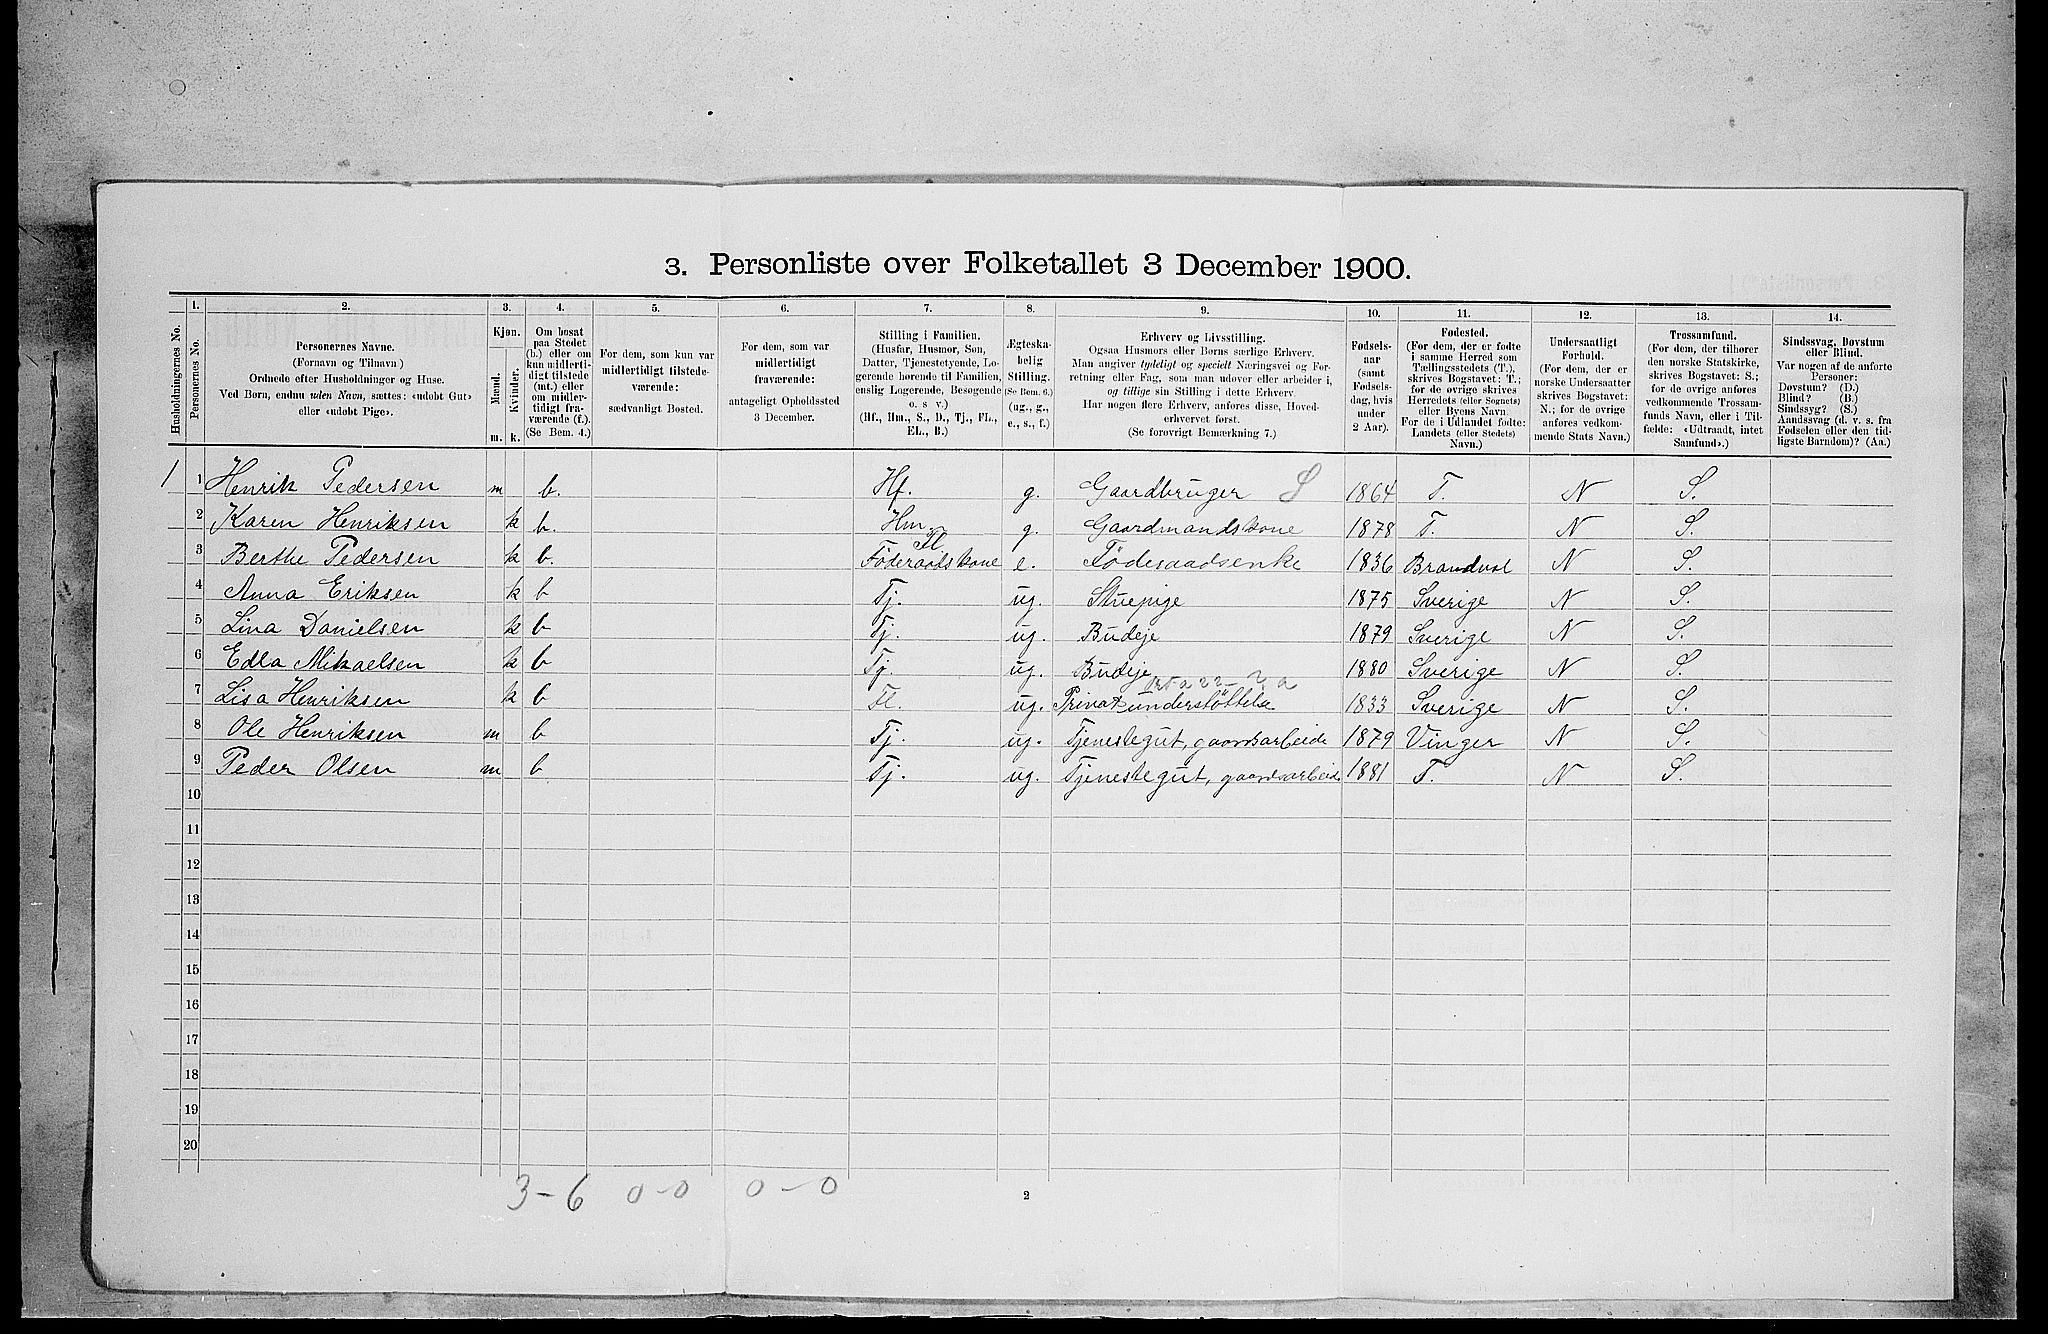 3. Personliste over Folketallet 3 December 1900.
Husholdningernes No.
1.
Personernes No.
2.
Personernes Navne.
(Fornavn og Tilnavn)
Ordnede efter Husholdninger og Huse.
Ved Børn, endnu uden Navn, sættes: «udøbt Gut»
eller «udøbt Pige».
3.
Kjøn.
Mænd.
Kvinder.
m. k.
4.
Om bosat
paa Stedet
(b.) eller om
kun midlerti-
digt tilstede
(mt.) eller
om midler-
tidigt fra-
værende (f.).
(Se Bem. 4.)
5.
For dem, som kun var
midlertidigt tilstede-
værende:
sædvanligt Bosted.
6.
For dem, som var
midlertidigt
fraværende:
antageligt Opholdssted
3 December.
7.
Stilling i Familien.
(Husfar, Husmor, Søn,
Datter, Tjenestetyende, Lo-
gerende hørende til Familien,
enslig Logerende, Besøgende
o. s v.)
(Hf., Hm., S., D., Tj., FL.,
EL., B.)
8.
Ægteska-
belig
Stilling.
(Se Bem. 6.)
(ug., g.,
e., s., f.)
9.
Erhverv og Livsstilling.
Ogsaa Husmors eller Børns særlige Erhverv.
Man angiver tydeligt og specielt Næringsvei og For-
retning eller Fag, som man udover eller arbeider i,
og tillige sin Stilling i dette Erhverv.
Har nogen flere Erhverv, anføres disse, Hoved-
erhvervet først.
(Se forøvrigt Bemærkning 7.)
10.
Fødsels-
aar
(samt
Fødsels-
dag, hvis
under
2 Aar).
11.
Fødested.
(For dem, der er fødte
i samme Herred som
Tællingsstedets (T.),
skrives Bogstavet: T.;
for de øvrige skrives
Herredets (eller Sognets)
eller Byens Navn.
For de i Udlandet fødte:
Landets (eller Stedets)
Navn.)
12.
Undersaatligt
Forhold.
(For dem, der er
norske Undersaatter
skrives Bogstavet:
N.; for de øvrige
anføres vedkom-
mende Stats Navn.)
13.
Trossamfund.
(For dem, der tilhører
den norske Statskirke,
skrives Bogstavet: S.;
for de øvrige anføres
vedkommende Trossam-
funds Navn, eller i Til-
fælde: «Udtraadt, intet
Samfund».)
14.
Sindssvag, Døvstum
eller Blind.
Var nogen af de anførte
Personer:
Døvstum? (D.)
Blind? (B.)
Sindssyg? (S.)
Aandssvag (d. v. s. fra
Fødselen eller den tid-
ligste Barndom)? (Aa.)
1 1 Henrik Pedersen m b. Hf. g. Gaardbruger S 1864 T. N S.
2 Karen Henriksen k b. Hm. g. Gaardmandskone 1878 T. N S.
Fl
3 Berthe Pedersen k b. Føderaadskone e. Føderaadsenke 1836 Brandval N S.
4 Anna Eriksen k b Tj. ug. Stuepige 1875 Sverige N S.
5 Lina Danielsen k b Tj. ug. Budeje 1879 Sverige N S.
6 Edla Mikaelsen k b Tj. ug. Budeje 1880 Sverige N S.
7 Lisa Henriksen k b Fl. ug. Privatunderstøttelse 1833 Sverige N S.
8 Ole Henriksen m b Tj. ug. Tjenestegut, gaardsarbeide 1879 Vinger N S.
9 Peder Olsen m b Tj. ug. Tjenestegut, gaardsarbeide 1881 T. N S.
10
11
12
13
14
15
16
17
18
19
20
3-6 0-0 0-0
2